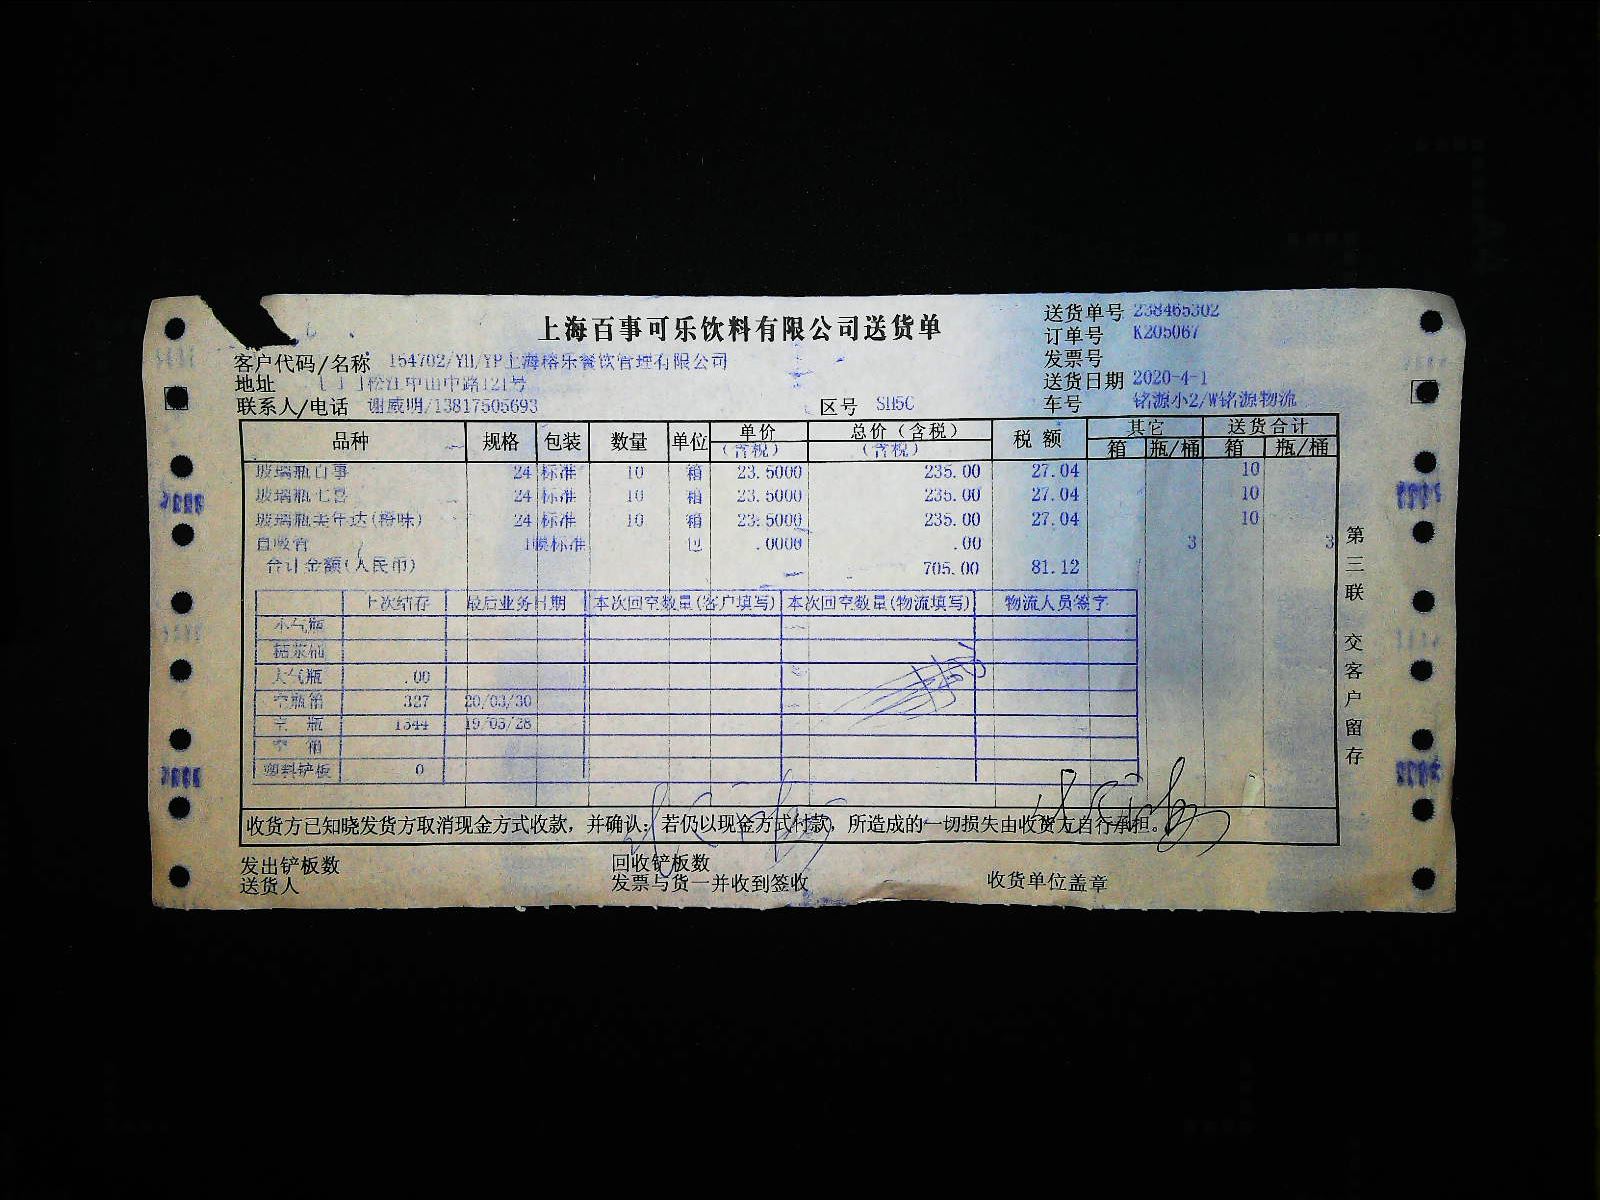 上海百事可乐饮料有限公司送货单
送货单号 238465302
订单号 K205067
发票号
送货日期 2020-4-1
车号 铭源小2/W铭源物流
客户代码/名称 154702/YH/YP上海榕乐餐饮管理有限公司
地址 松江中山中路121号
联系人/电话 谢威明/13817505693 区号 SH5C
品种 规格 包装 数量 单位 单价(含税) 总价(含税) 税额 其它 送货合计
(含税) 箱 瓶/桶 箱 瓶/桶
玻璃瓶百事 24 标准 10 箱 23.5000 235.00 27.04 10
玻璃瓶七喜 24 标准 10 箱 23.5000 235.00 27.04 10
玻璃瓶美年达(橙味) 24 标准 10 箱 23.5000 235.00 27.04 10
自吸管 1 标准 包 .0000 .00 3 3
合计金额(人民币) 705.00 81.12
上次结存 最后业务日期 本次回空数量(客户填写) 本次回空数量(物流填写) 物流人员签字
小气瓶
糖浆桶
大气瓶 .00
空瓶箱 327 20/03/30
空瓶 1344 19/03/28
空箱
塑料铲板 0
收货方已知晓发货方取消现金方式收款，并确认：若仍以现金方式付款，所造成的一切损失由收货方自行承担。
发出铲板数 回收铲板数
送货人 发票与货一并收到签收 收货单位盖章
第三联 交客户留存